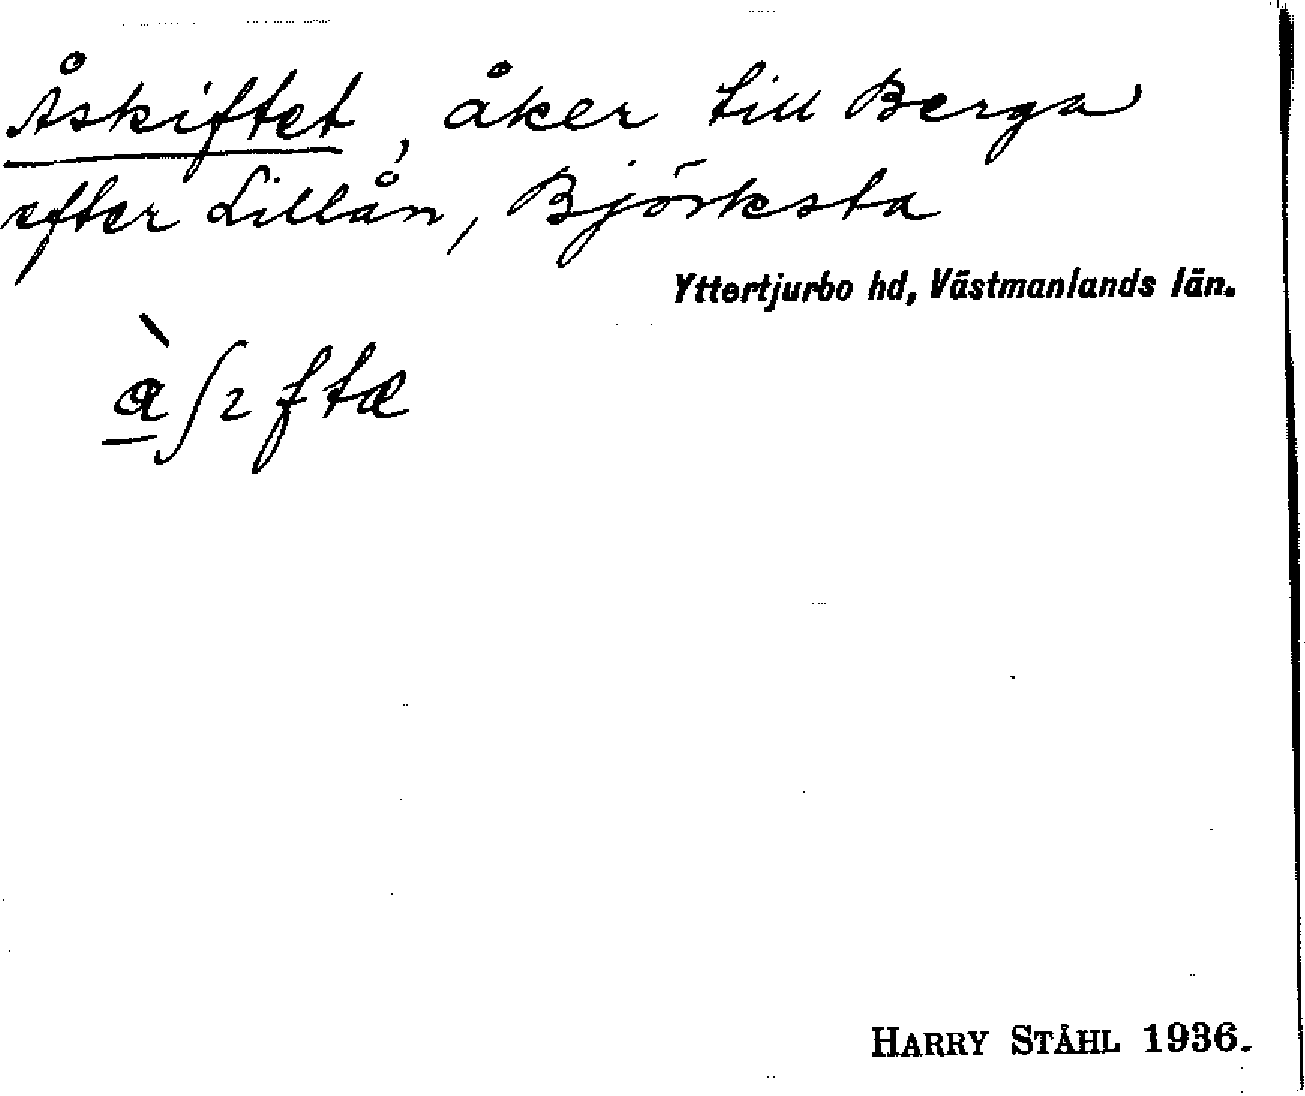 Åskiftet, åker till Berga
efter Lillån, Björksta
Yttertjurbo hd, Västmanlands län.
HARRY STÅHL 1936.